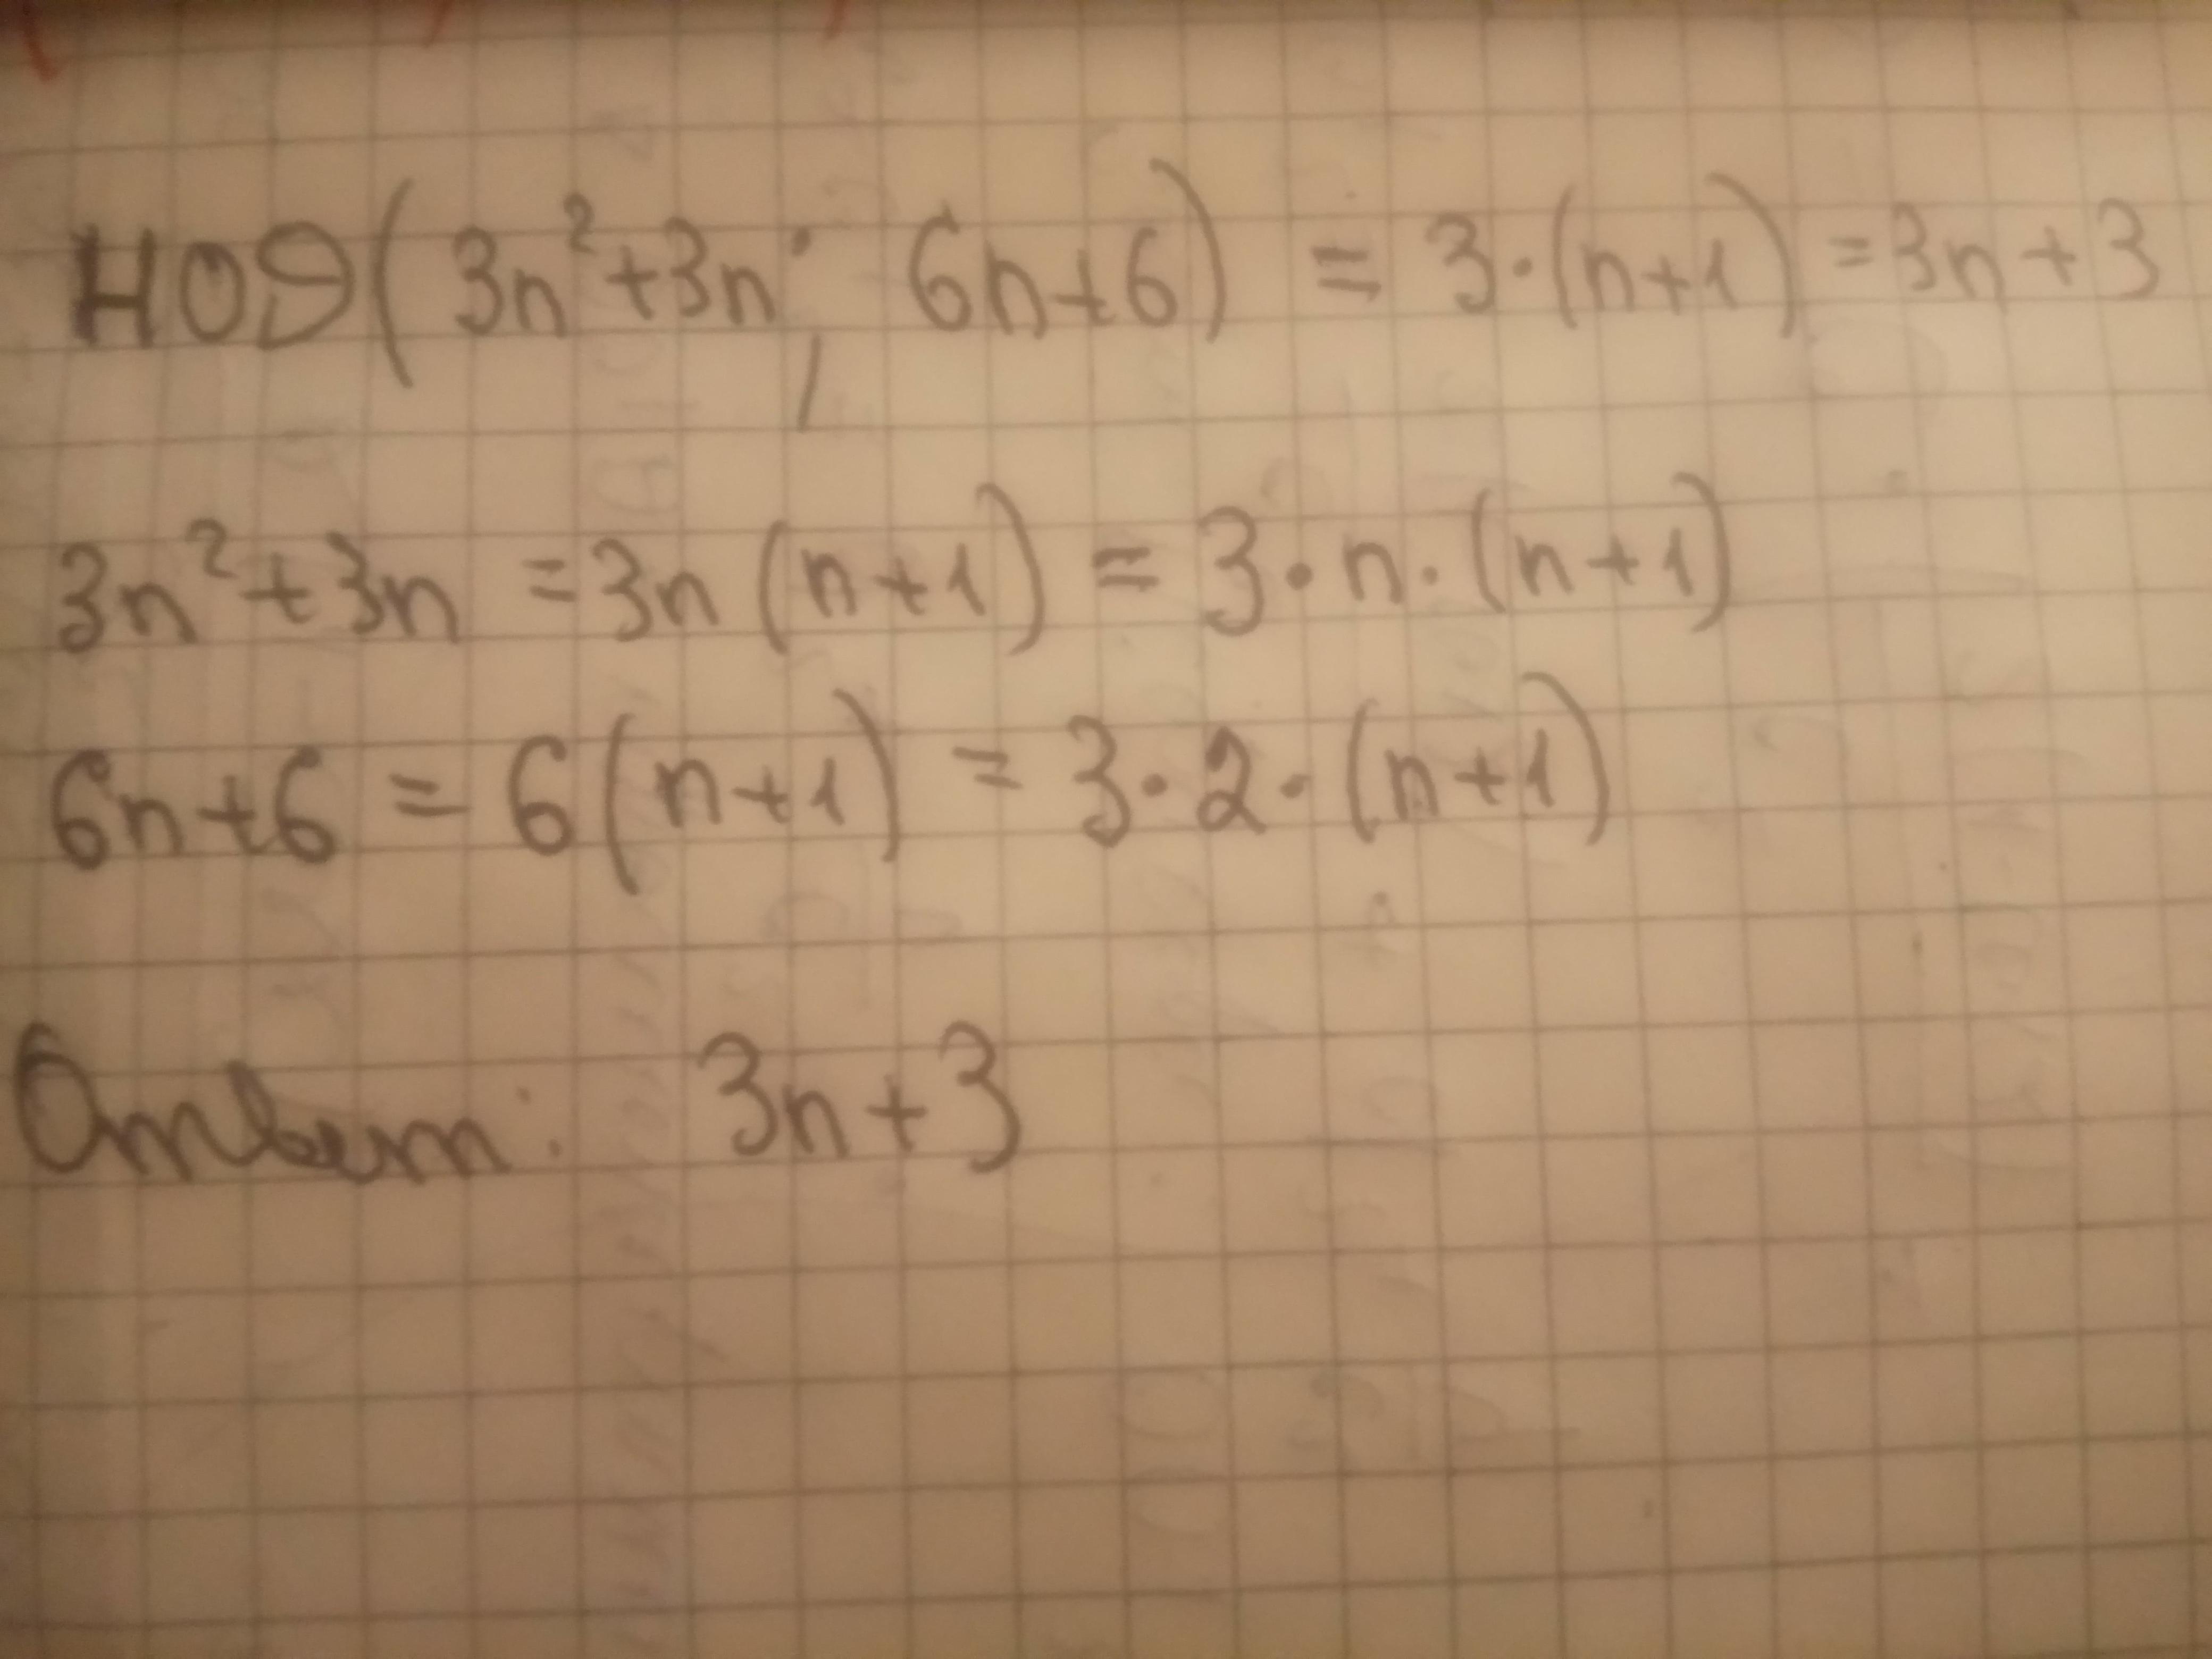 НОД(3n²+3n; 6n+6) = 3·(n+1) = 3n+3
3n²+3n = 3n(n+1) = 3·n·(n+1)
6n+6 = 6(n+1) = 3·2·(n+1)
Ответ: 3n+3